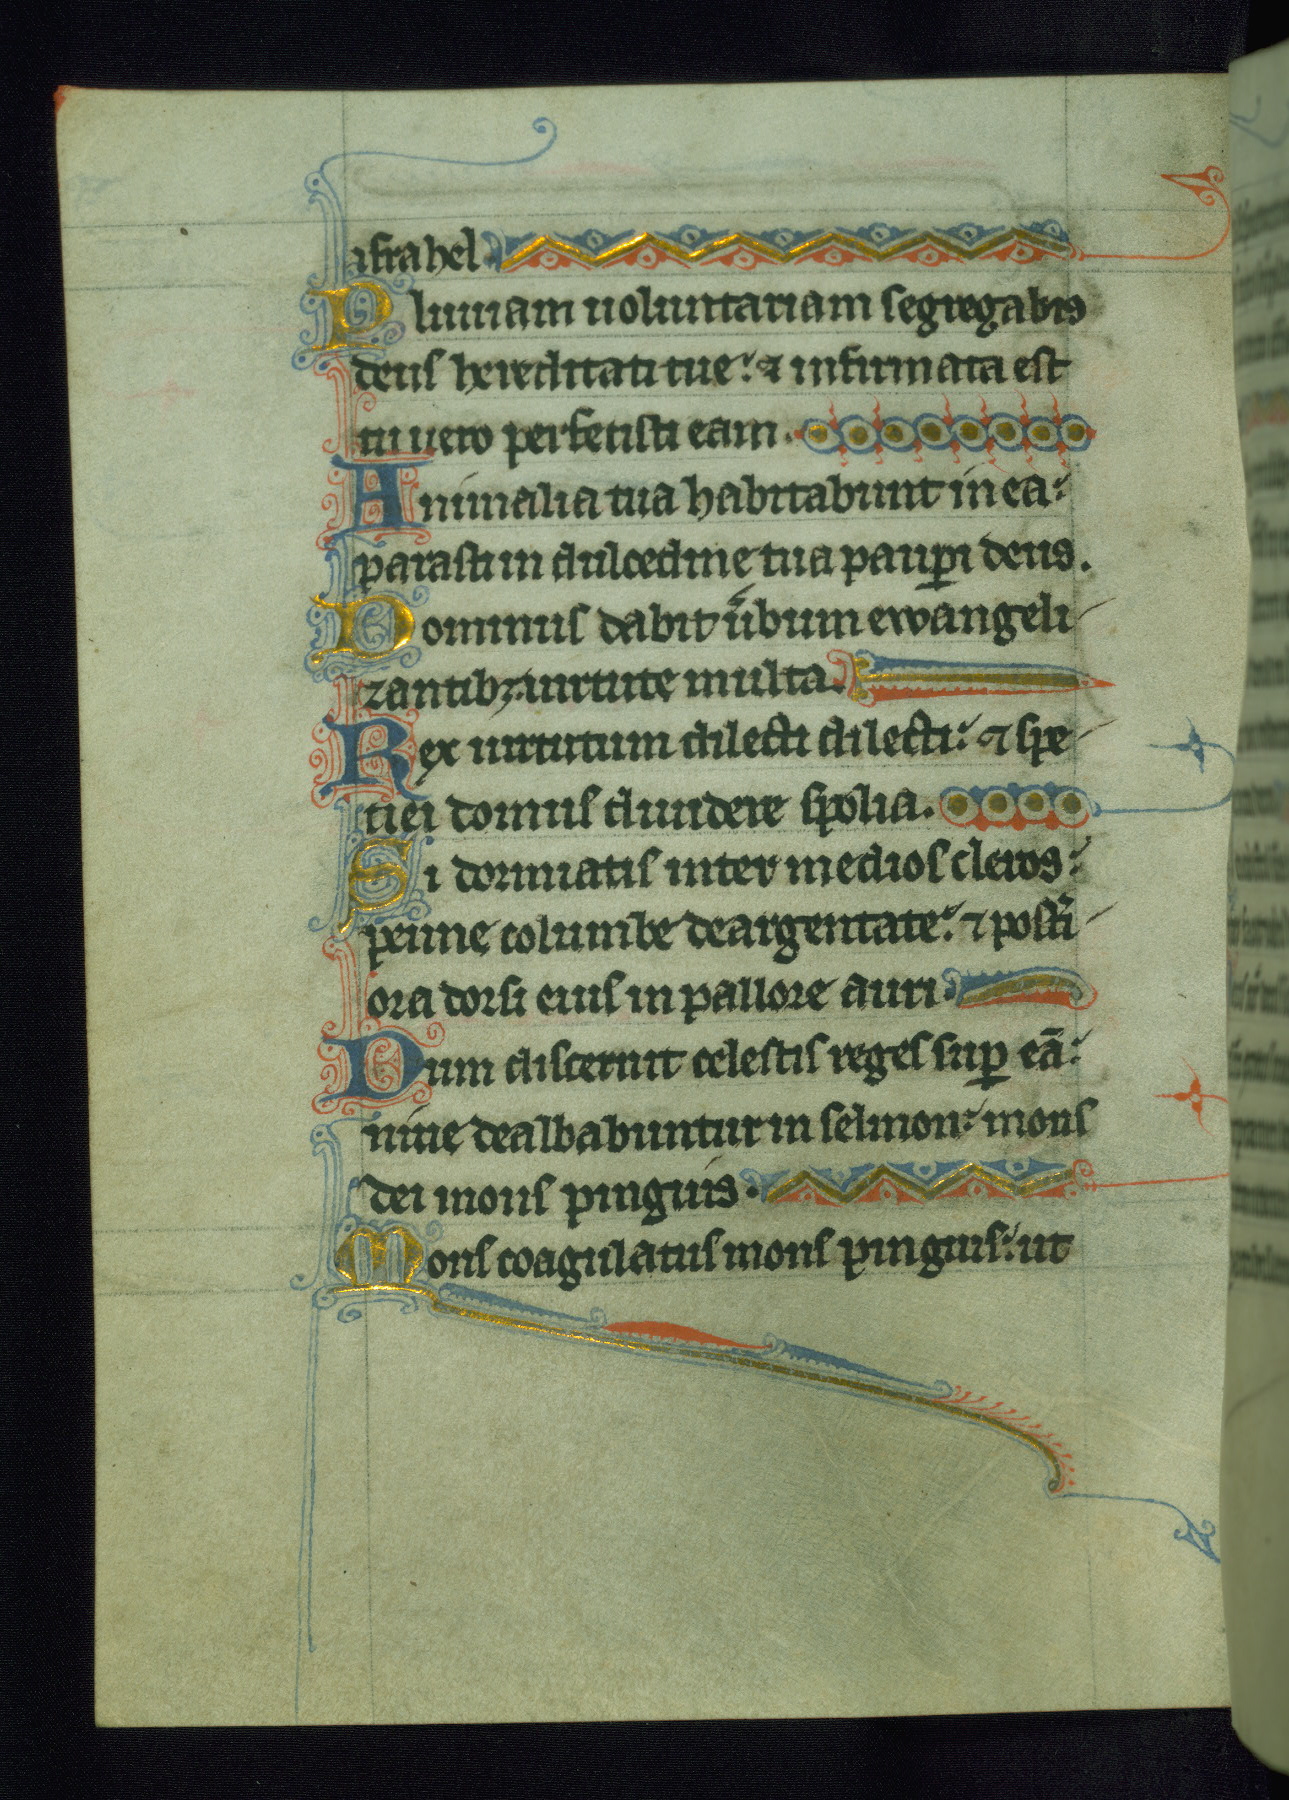 israhel.
Pluuiam uoluntariam segregabis
deus hereditati tue: ⁊ infirmata est
tu uero perfecisti eam.
Animalia tua habitabunt in ea:
parasti in dulcedine tua pauꝑi deus.
Dominus dabit u̾bum ewangeli
zantibꝫ uirtute multa.
Rex uirtutum dilecti dilecti: ⁊ spe
tiei domus diuidere spolia.
Si dormiatis inter medios cleros:
penne columbe deargentate: ⁊ post̾i
ora dorsi eius in pallore auri.
Dum discernit celestis reges suꝑ eā:
niue dealbabuntur in selmon: mons
dei mons pinguis.
Mons coagulatus mons pinguis: ut